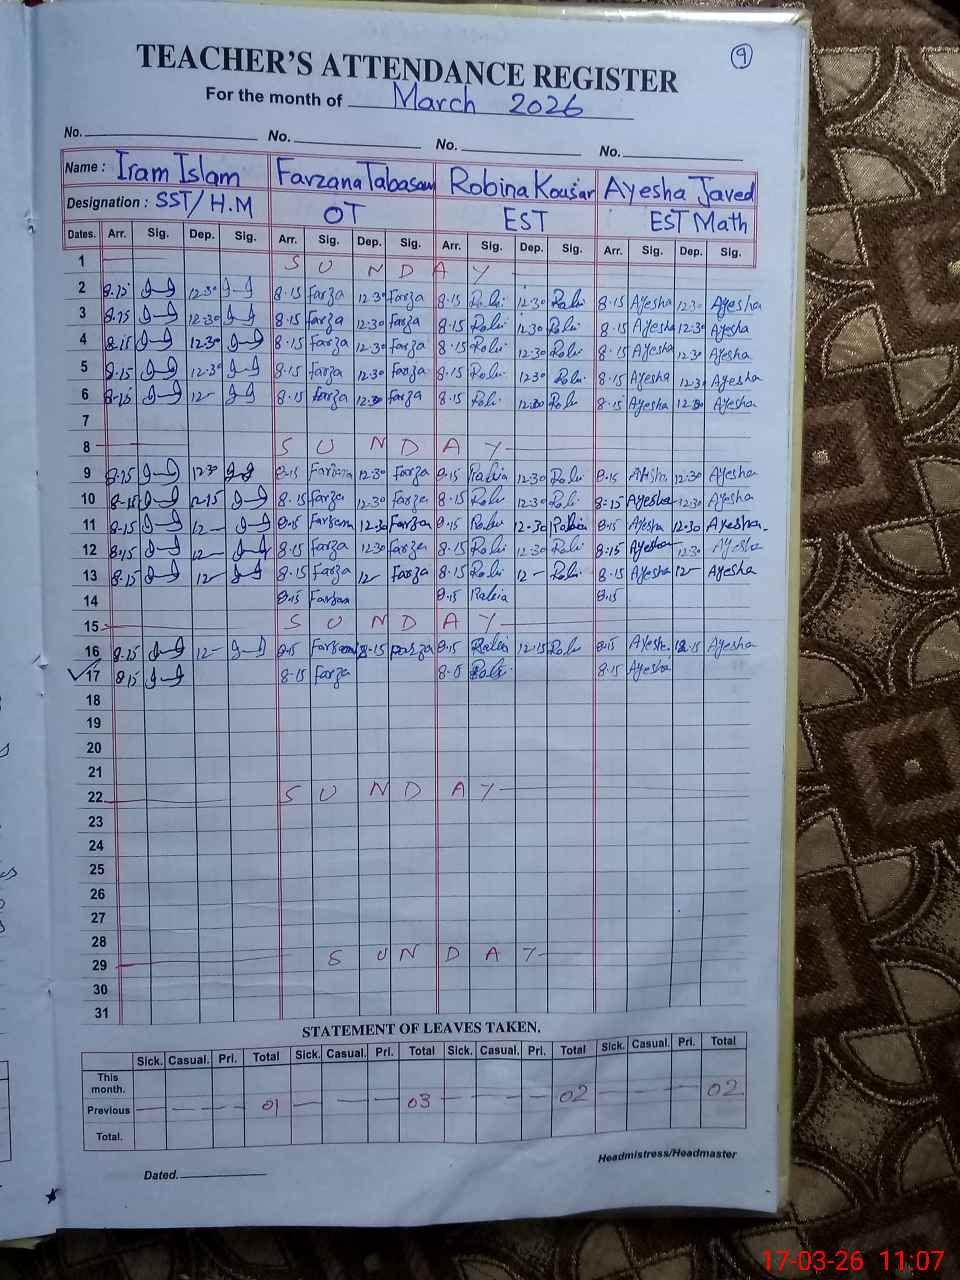 9
TEACHER'S ATTENDANCE REGISTER
For the month of March 2026
No. No. No. No.
Name : Iram Islam Farzana Tabasam Robina Kousar Ayesha Javed
Designation : SST/H.M OT EST EST Math
Dates. Arr. Sig. Dep. Sig. Arr. Sig. Dep. Sig. Arr. Sig. Dep. Sig. Arr. Sig. Dep. Sig.
1 S U N D A Y
2 8-15 12.30 8.15 Farza 12.30 Farza 8.15 Rabi 12.30 Rabi 8.15 Ayesha 12.30 Ayesha
3 8-15 12.30 8.15 Farza 12.30 Farza 8.15 Rabi 12.30 Rabi 8.15 Ayesha 12.30 Ayesha
4 8-15 12.30 8.15 Farza 12.30 Farza 8.15 Rabi 12.30 Rabi 8.15 Ayesha 12.30 Ayesha
5 8.15 12.30 8.15 Farza 12.30 Farza 8.15 Rabi 12.30 Rabi 8.15 Ayesha 12.30 Ayesha
6 8-15 12- 8.15 Farza 12.30 Farza 8.15 Rabi 12.30 Rabi 8.15 Ayesha 12.30 Ayesha
7
8 S U N D A Y
9 8-15 12.30 8.15 Farzana 12.30 Farza 8.15 Rabia 12.30 Rabi 8.15 12.30 Ayesha
10 8-15 12-15 8.15 Farza 12.30 Farza 8.15 Rabi 12.30 Rabi 8.15 Ayesha 12.30 Ayesha
11 8-15 12- 8.15 Farzana 12.30 Farza 8.15 Rabi 12.30 Rabia 8.15 Ayesha 12.30 Ayesha
12 8.15 12- 8.15 Farza 12.30 Farza 8.15 Rabi 12.30 Rabi 8.15 Ayesha 12.30 Ayesha
13 8.15 12- 8.15 Farza 12- Farza 8.15 Rabi 12- Rabi 8.15 Ayesha 12- Ayesha
14 8.15 Farzana 8.15 Rabia 8.15
15 S U N D A Y
16 8.15 12- 8.15 Farzana 12-15 Farza 8.15 Rabia 12.15 Rabi 8.15 Ayesha 12.15 Ayesha
✓17 8.15 8.15 Farza 8.15 Rabi 8.15 Ayesha
18
19
20
21
22 S U N D A Y
23
24
25
26
27
28
29 S U N D A Y
30
31
STATEMENT OF LEAVES TAKEN.
Sick. Casual. Pri. Total Sick. Casual. Pri. Total Sick. Casual. Pri. Total Sick. Casual. Pri. Total
This month.
Previous — — — 01 — — — 03 — — — 02 — — — 02
Total.
Dated. Headmistress/Headmaster
17-03-26 11:07